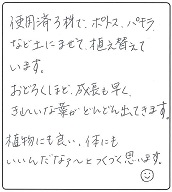 使用済ろ材で、ポトス、パキラ
など土にまぜて、植え替えて
います。
おどろくほど、成長も早く、
きれいな葉がどんどん出てきます。
植物にも良い、体にも
いいんだなぁ〜とつくづく思います。